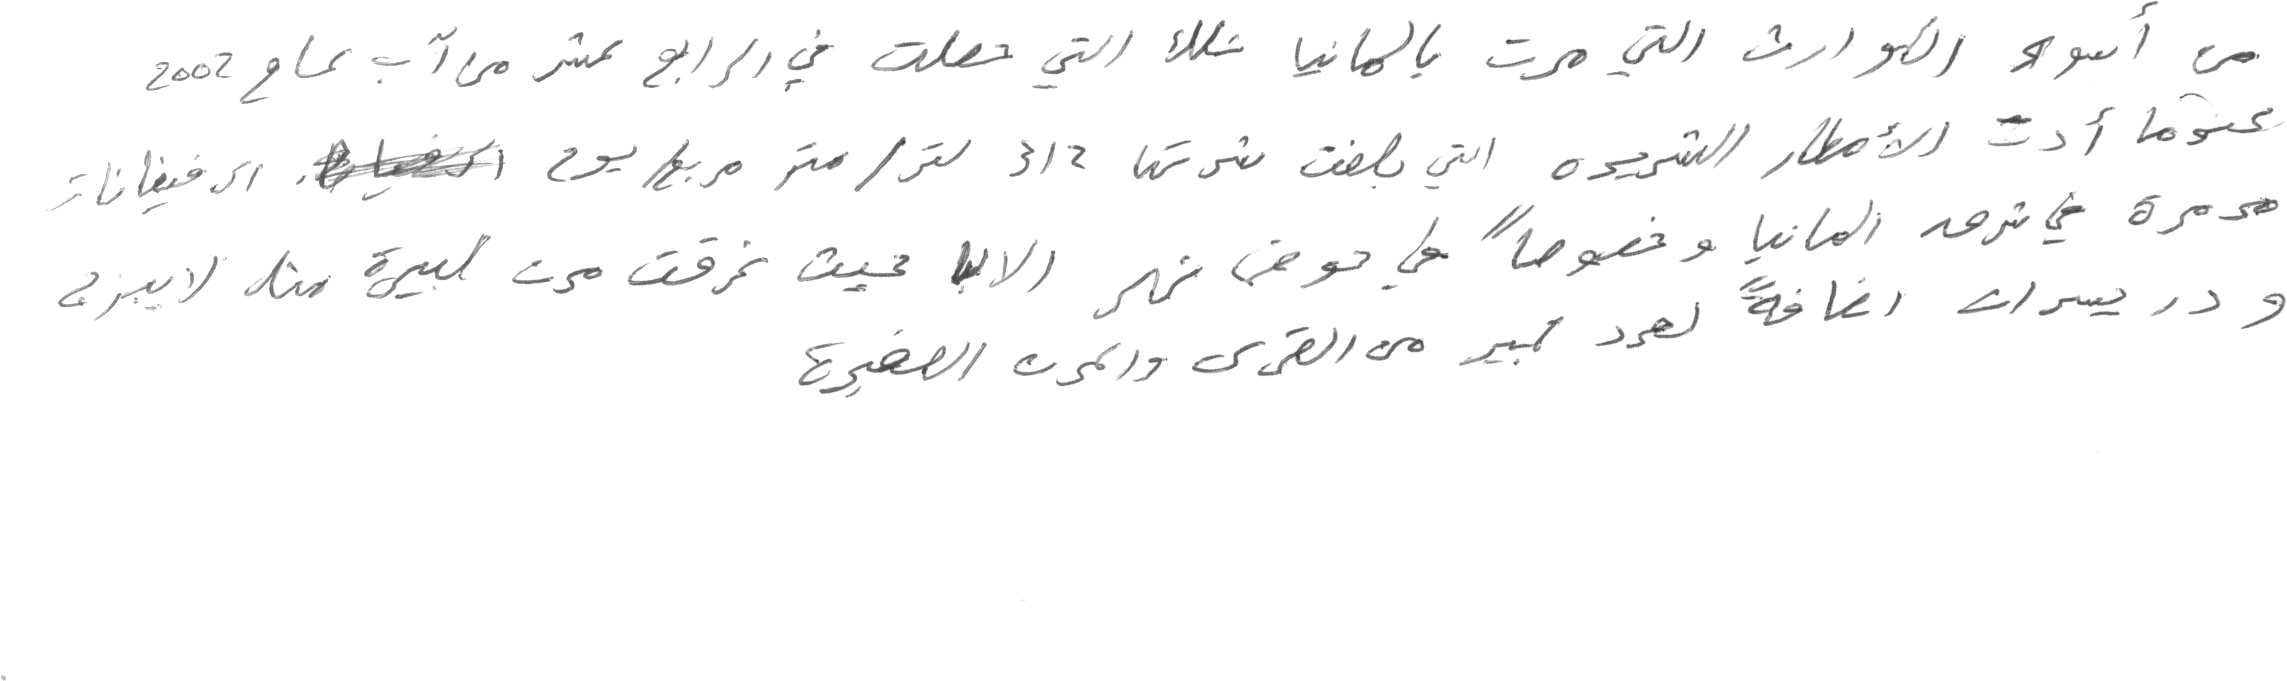 من أسوء الكوارث التي مرت بالمانيا تلك التي حصلت في الرابع عشر من آب عام 2002
عندما أدت الأمطار الشديده التي بلغت شدتها 312 لتر/متر مربع/يوم الى فيضانات
مدمرة في شرق المانيا وخصوصاً في حوض نهر الالب حيث غرقت مدن كبيرة مثل لايبزج
و دريسدن اضافةً لعدد كبير من القرى والمدن الصغيرة